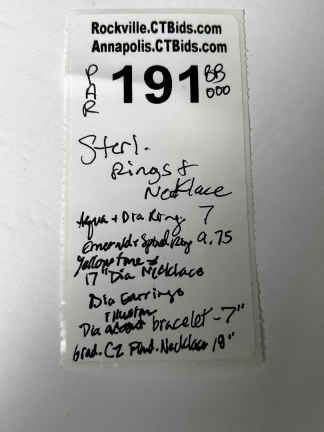 Rockville.CTBids.com
Annapolis.CTBids.com
PAR 191 BB 000
Sterl.
Rings &
Necklace
Aqua + Dia Ring 7
Emerald + Ring 9.75
Yellowtone
17" Dia Necklace
Dia Earrings
Illusion
Dia accent bracelet - 7"
Grad. CZ Necklace 18"